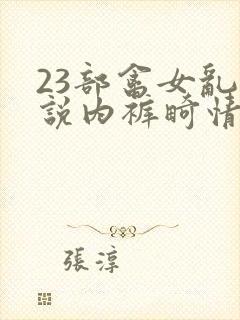 23部畜女亂
說內褲畸情
張淳